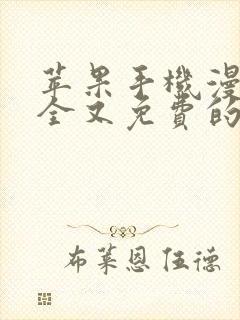 苹果手機漫
全又免費的
布莱恩伍德